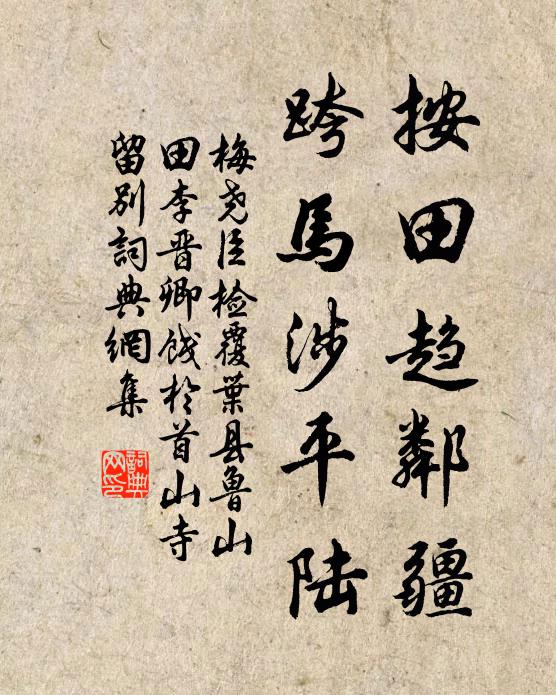 按田趋鄰疆
跨馬涉平陆
梅尧臣检覆葉县魯山
田李晋卿餞於首山寺
留别詞典網集
詞典網印